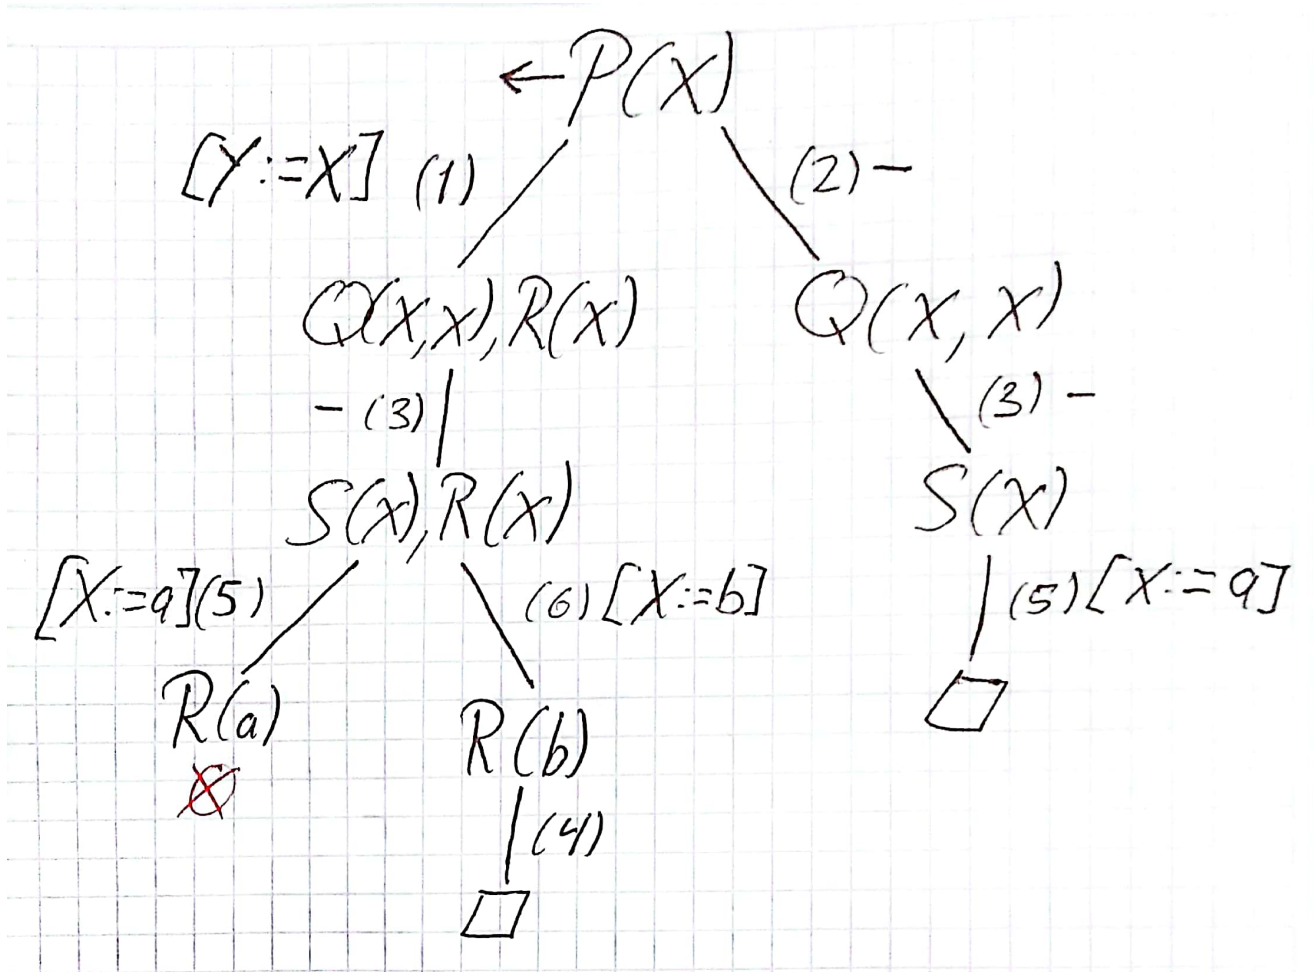 ← P(X)
[Y:=X] (1) (2) –
Q(X,X), R(X) Q(X, X)
– (3) (3) –
S(X), R(X) S(X)
[X:=a](5) (6) [X:=b] (5) [X:=a]
R(a) R(b)
(4)